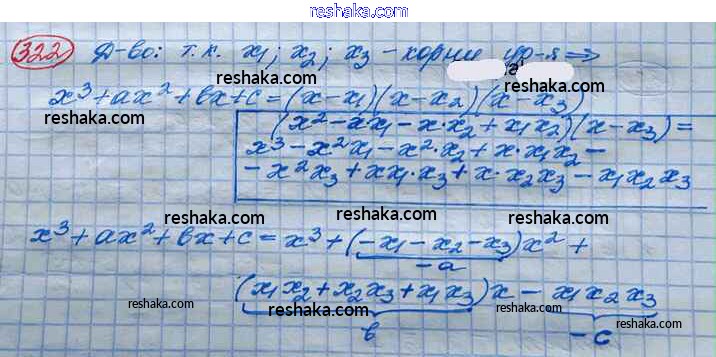 reshaka.com
322 Д-во: т.к. x₁; x₂; x₃ - корни ур-я ⇒
reshaka.com reshaka.com
x³+ax²+bx+c=(x-x₁)(x-x₂)(x-x₃)
reshaka.com reshaka.com reshaka.com
(x²-xx₁-x·x₂+x₁x₂)(x-x₃)=
x³-x²x₁-x²·x₂+x·x₁x₂-
-x²x₃+xx₁·x₃+x·x₂x₃-x₁x₂x₃
reshaka.com reshaka.com reshaka.com
x³+ax²+bx+c=x³+(-x₁-x₂-x₃)x²+
-a
reshaka.com reshaka.com
(x₁x₂+x₂x₃+x₁x₃)x-x₁x₂x₃
reshaka.com reshaka.com reshaka.com
b -c